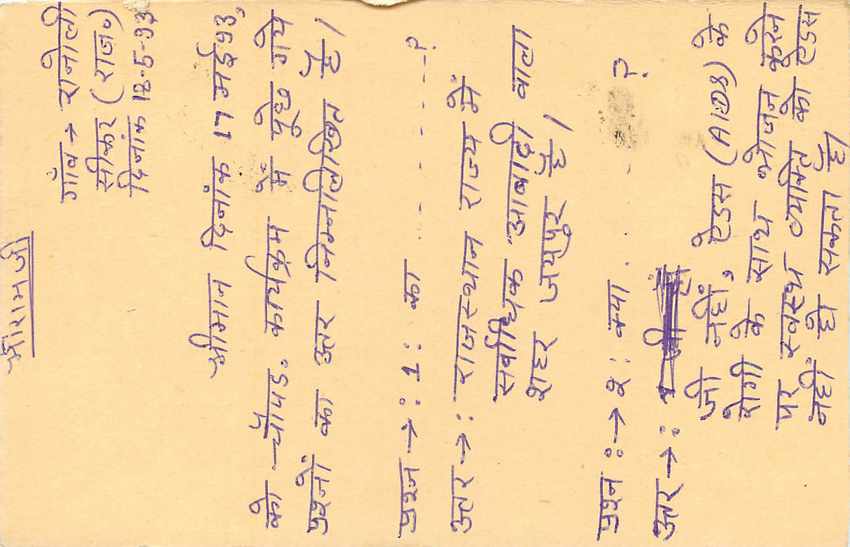 श्रीरामजी
गाँव → रानोली
सीकर (राज०)
दिनांक 18-5-93
श्रीमान दिनांक 17 मई 93,
को चौपड. कार्यक्रम में पूछे गये
प्रश्नों का उत्तर निम्नलिखित है।
प्रश्न →: 1: का . . . . . . . - - ?
उत्तर →: राजस्थान राज्य में
सर्वाधिक आबादी वाला
शहर जयपुर है।
प्रश्न :→ २: क्या . . . . . . . ?
उत्तर →:
जी नहीं, ऐडस (AIDS) के
रोगी के साथ भोजन करने
पर स्वस्थ व्यक्ति को ऐडस
नहीं हो सकता है।